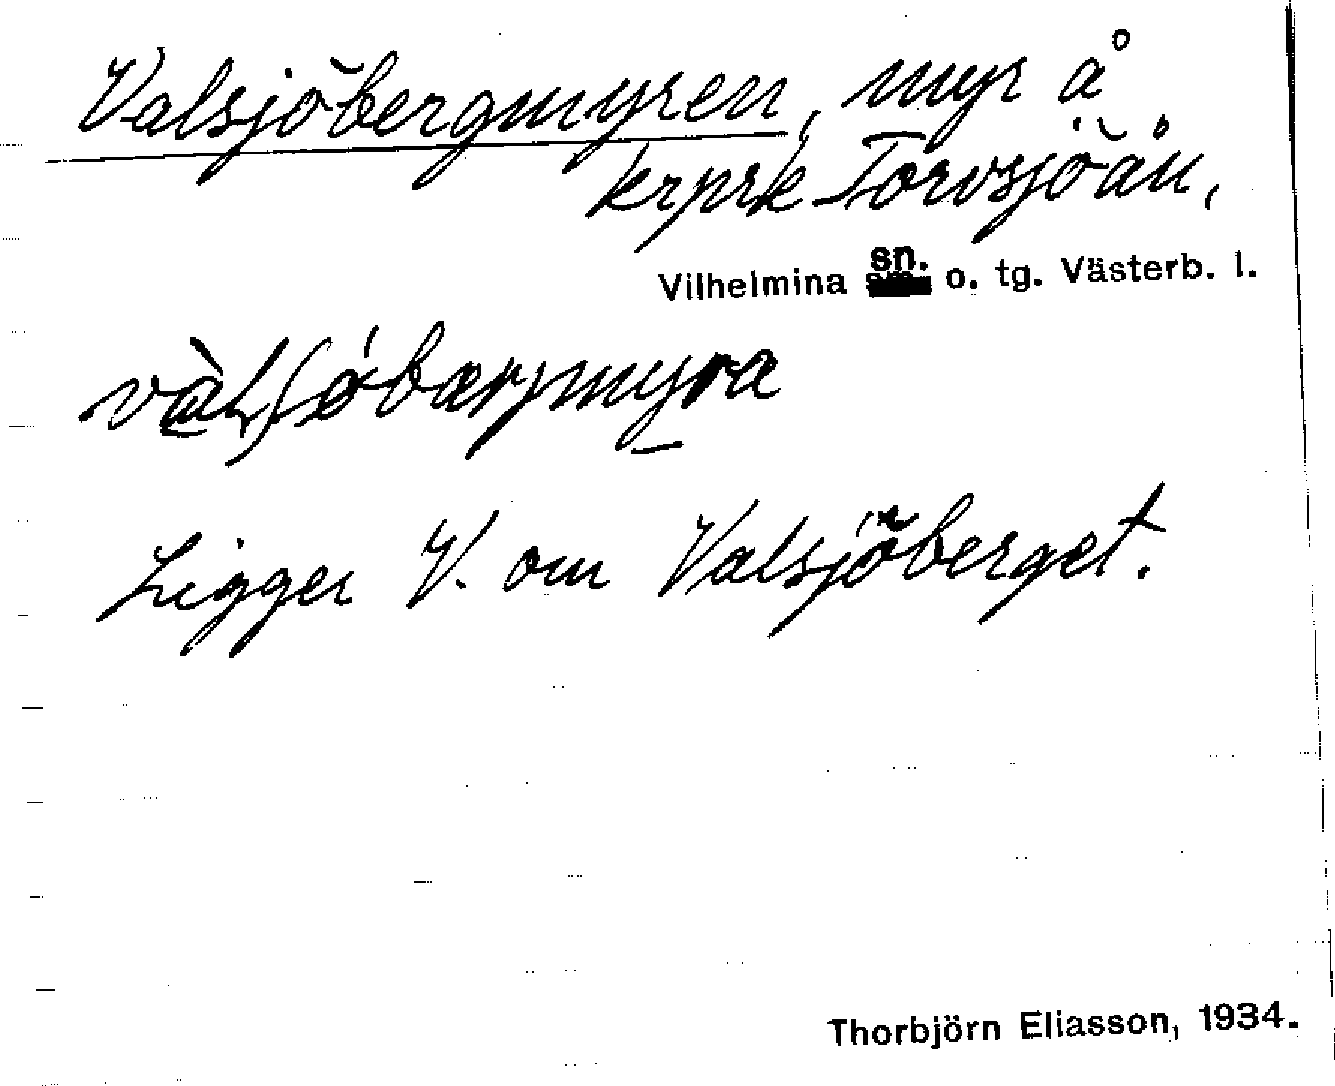 Valsjöbergmyren, myr å
krprk Torvsjöån,
Vilhelmina sn. o. tg. Västerb. l.
Ligger V. om Valsjöberget.
Thorbjörn Eliasson, 1934.